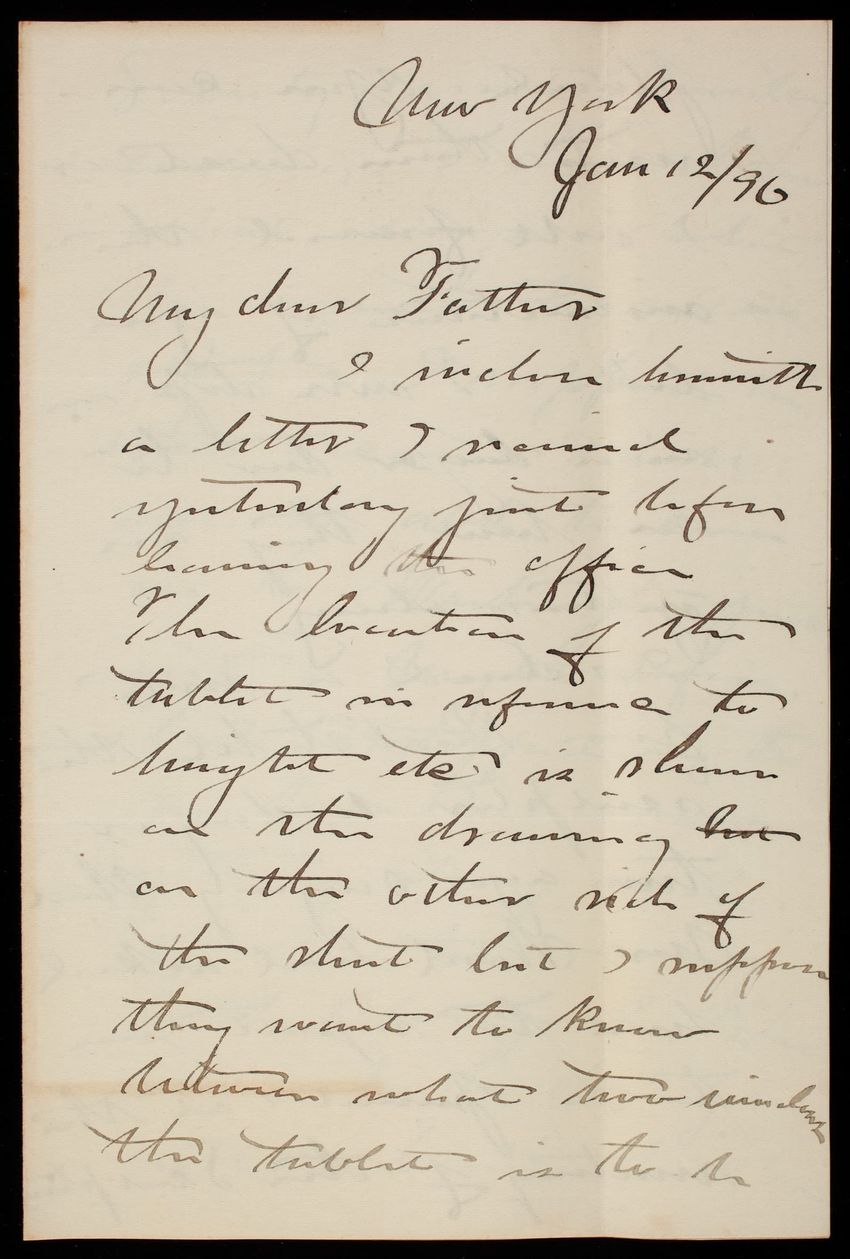 New York
Jan 12/96
My dear Father
I inclose herewith
a letter I received
yesterday just before
leaving the office
The location of the
tablet in reference to
height etc is shown
on the drawing but
on the other side of
the sheet but I suppose
they want to know
between what two windows
the tablet is to be